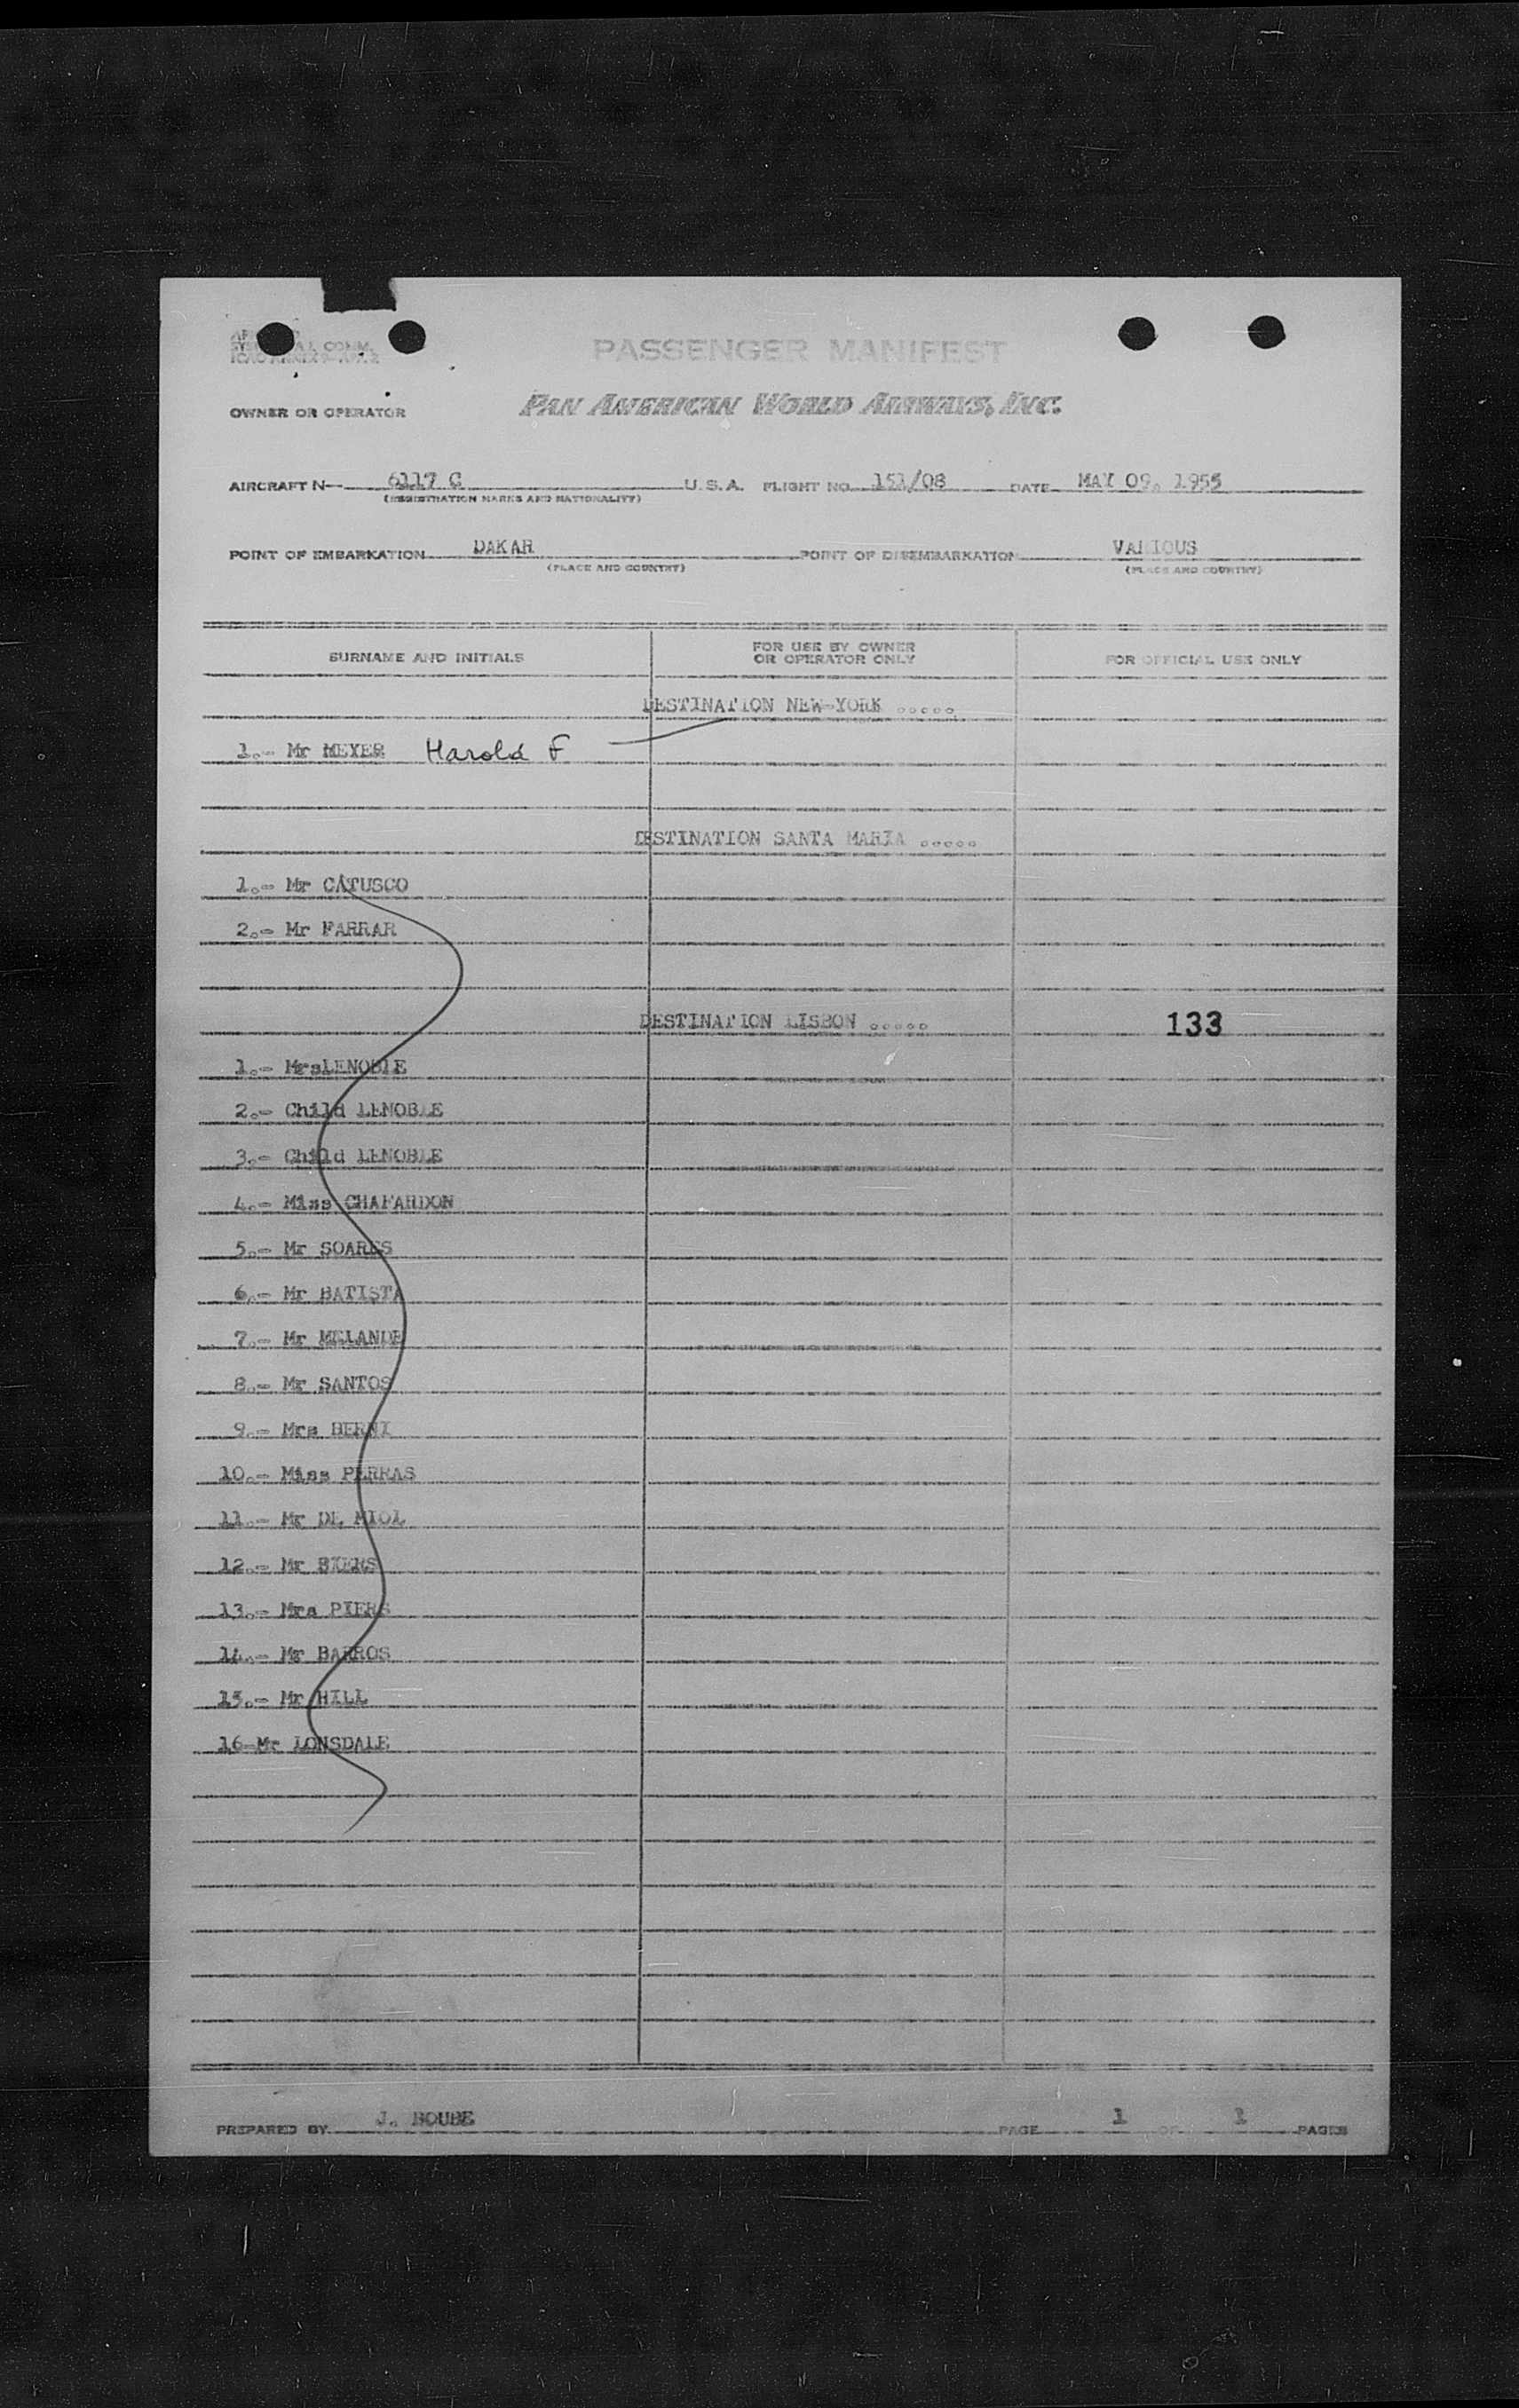 PASSENGER MANIFEST
OWNER OR OPERATOR PAN AMERICAN WORLD AIRWAYS, INC.
AIRCRAFT N— 6117 C U.S.A. FLIGHT NO. 151/08 DATE MAY 09, 1955
(REGISTRATION MARKS AND NATIONALITY)
POINT OF EMBARKATION DAKAR POINT OF DISEMBARKATION VARIOUS
(PLACE AND COUNTRY) (PLACE AND COUNTRY)
SURNAME AND INITIALS FOR USE BY OWNER OR OPERATOR ONLY FOR OFFICIAL USE ONLY
DESTINATION NEW-YORK .....
1.- Mr MEYER Harold F
DESTINATION SANTA MARIA .....
1.- Mr CATUSCO
2.- Mr FARRAR
DESTINATION LISBON ..... 133
1.- MrsLENOBLE
2.- Child LENOBLE
3.- Child LENOBLE
4.- Miss CHAFARDON
5.- Mr SOARES
6.- Mr BATISTA
7.- Mr
8.- Mr SANTOS
9.- Mrs BERNI
10.- Miss PERRAS
11.- Mr DE
12.- Mr
13.- Mrs PIERS
14.- Mr BARROS
15.- Mr HILL
16-Mr LONSDALE
PREPARED BY J. BOUBE PAGE 1 OF 1 PAGES